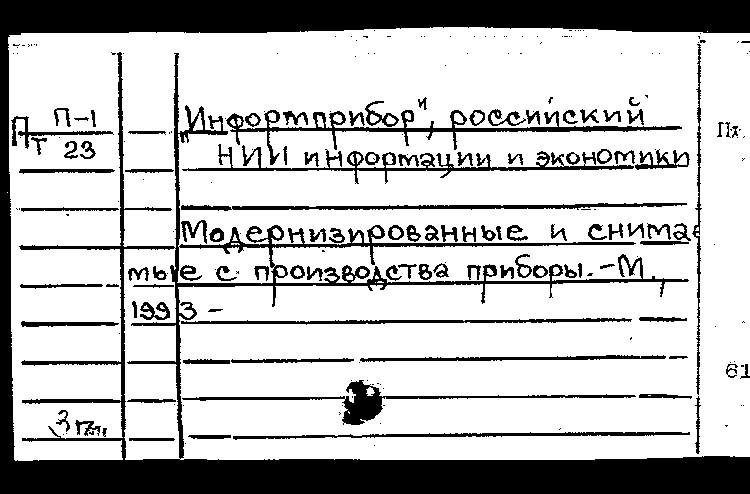 Пт П-1
23
"Информприбор", российский
НИИ информации и экономики
Модернизированные и снимае
мые с производства приборы.-М.,
1993 -
61